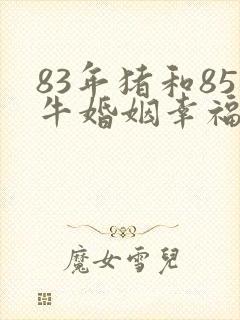 83年猪和85
牛婚姻幸福
魔女雪兒